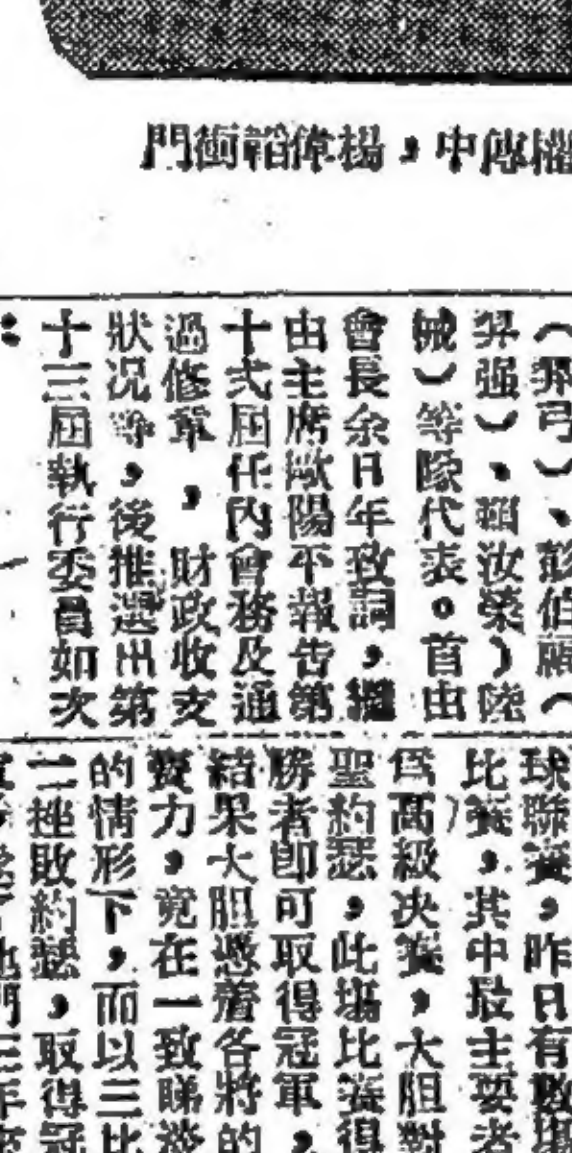 門衝韜偉楊，中傳權
（羿弓）、彭伯顯（
羿强）、賴汝榮）陸
械）等隊代表。首由
會長余日年致詞，繼
由主席歐陽不報告第
十弍屆任內會務及通
過修章，財政收支
狀况等，後推選出第
十三屆執行委員如次
：
球聯賽，昨日有數塲
比賽，其中最主要者
爲高級决賽，大胆對
聖約瑟，此塲比賽得
勝者卽可取得冠軍，
結果大胆憑着各將的
實力，竟在一致睇淡
的情形下，而以三比
二挫敗約瑟，取得冠